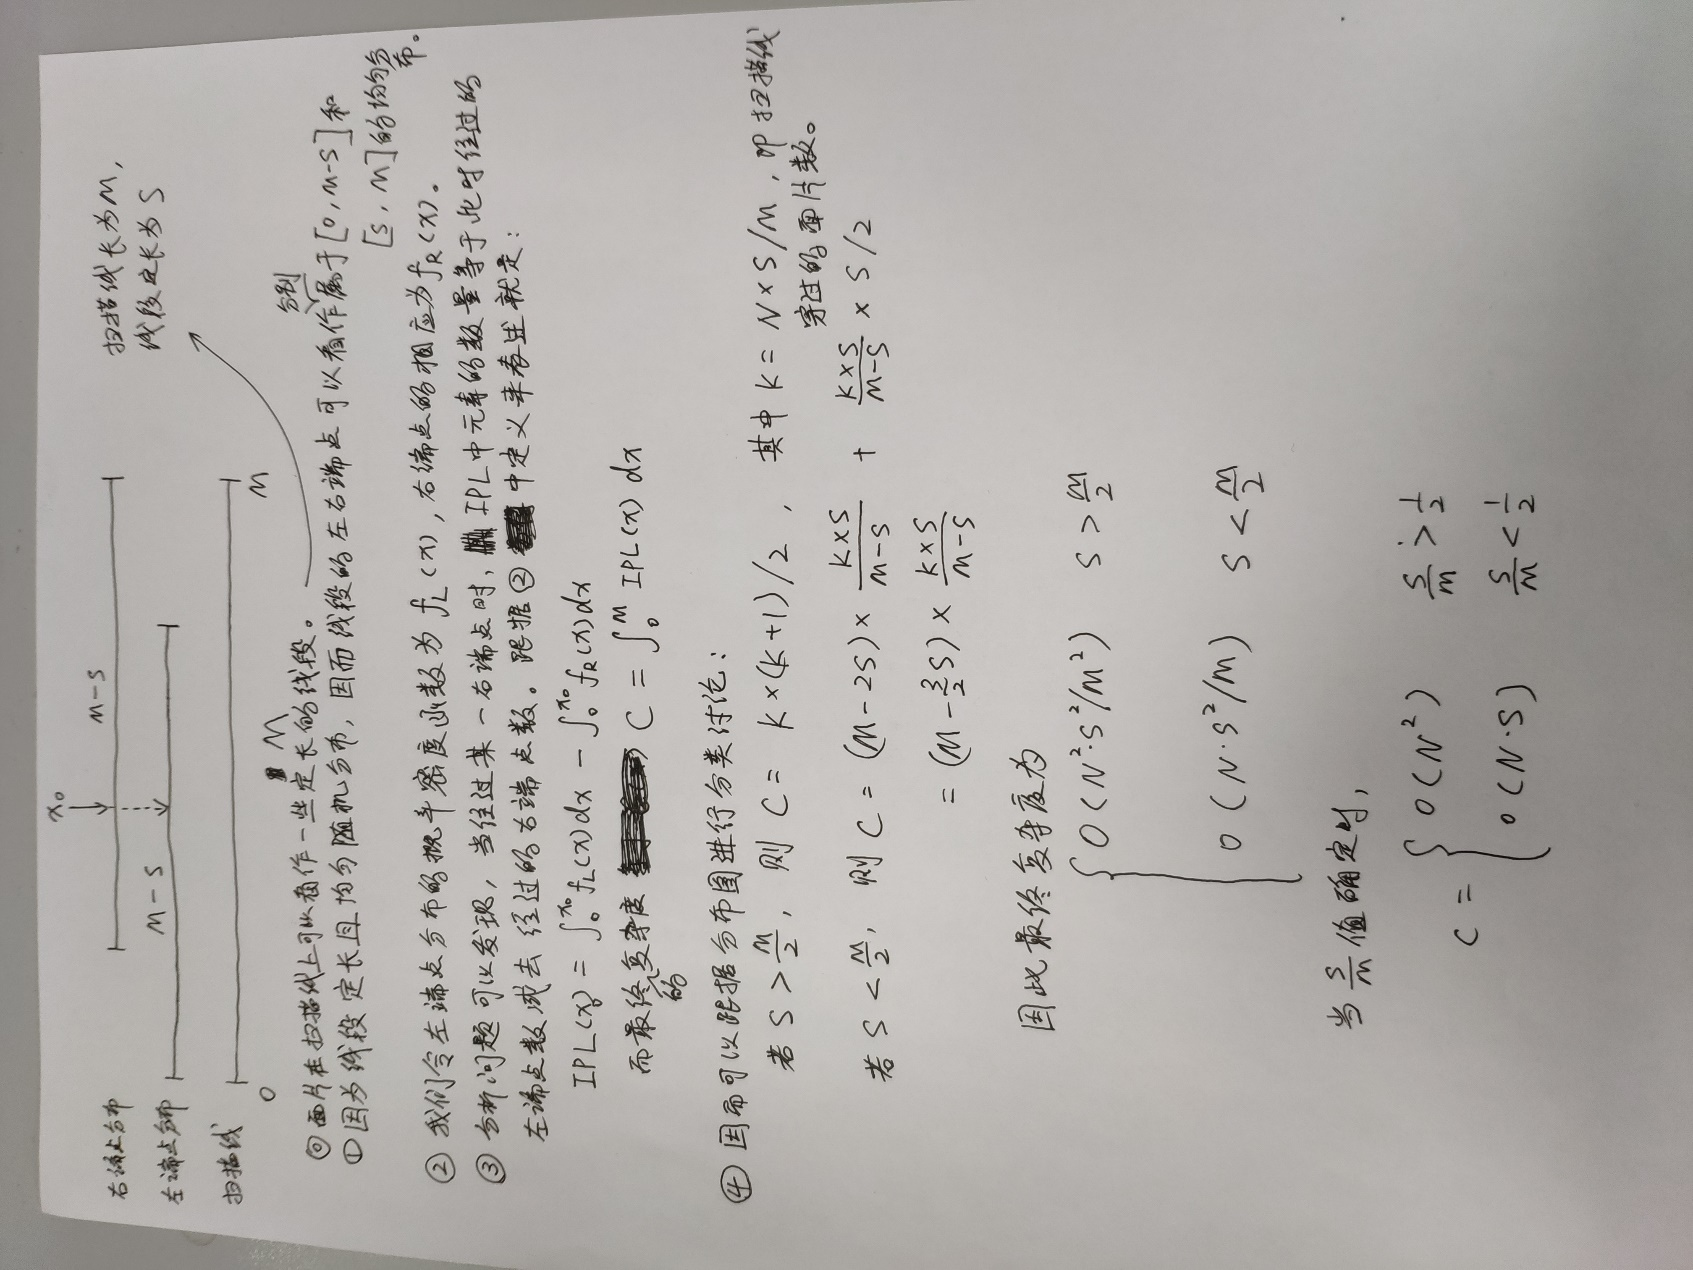 扫描线长为M,
线段定长为S
右端点分布
M-S
x₀
左端点分布
M-S
扫描线
0
M
⓪ 面片在扫描线上可以看作一些定长的线段。
M
① 因为线段定长且均匀随机分布,因而线段的左右端点可以看作分别属于[0,M-S]和
[S,M]的均匀分布。
② 我们令左端点分布的概率密度函数为 f_L(x),右端点的相应为 f_R(x)。
③ 分析问题可以发现,当经过某一右端点时,IPL中元素的数量等于此时经过的
左端点数减去 经过的右端点数。跟据②中定义来表述就是:
IPL(x₀) = ∫₀^{x₀} f_L(x)dx - ∫₀^{x₀} f_R(x)dx
而最终的复杂度 C = ∫₀^M IPL(x)dx
④ 因而可以跟据分布图进行分类讨论:
若 S > M/2, 则 C = K×(K+1)/2, 其中 K = N×S/M,即扫描线
穿过的面片数。
若 S < M/2, 则 C = (M-2S)× K×S/(M-S) + K×S/(M-S) × S/2
= (M-3/2 S)× K×S/(M-S)
因此最终复杂度为
{ O(N²·S²/M²) S > M/2
O(N·S²/M) S < M/2
当 S/M 值确定时,
C = { O(N²) S/M > 1/2
O(N·S) S/M < 1/2